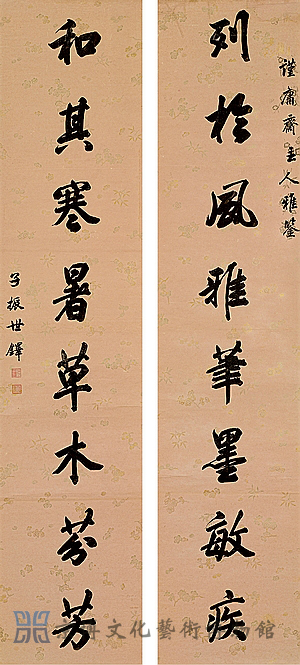 謹庸齋主人雅鑒
列於風雅筆墨敏疾
和其寒暑草木芬芳
子振世鐸
文化藝術博物館